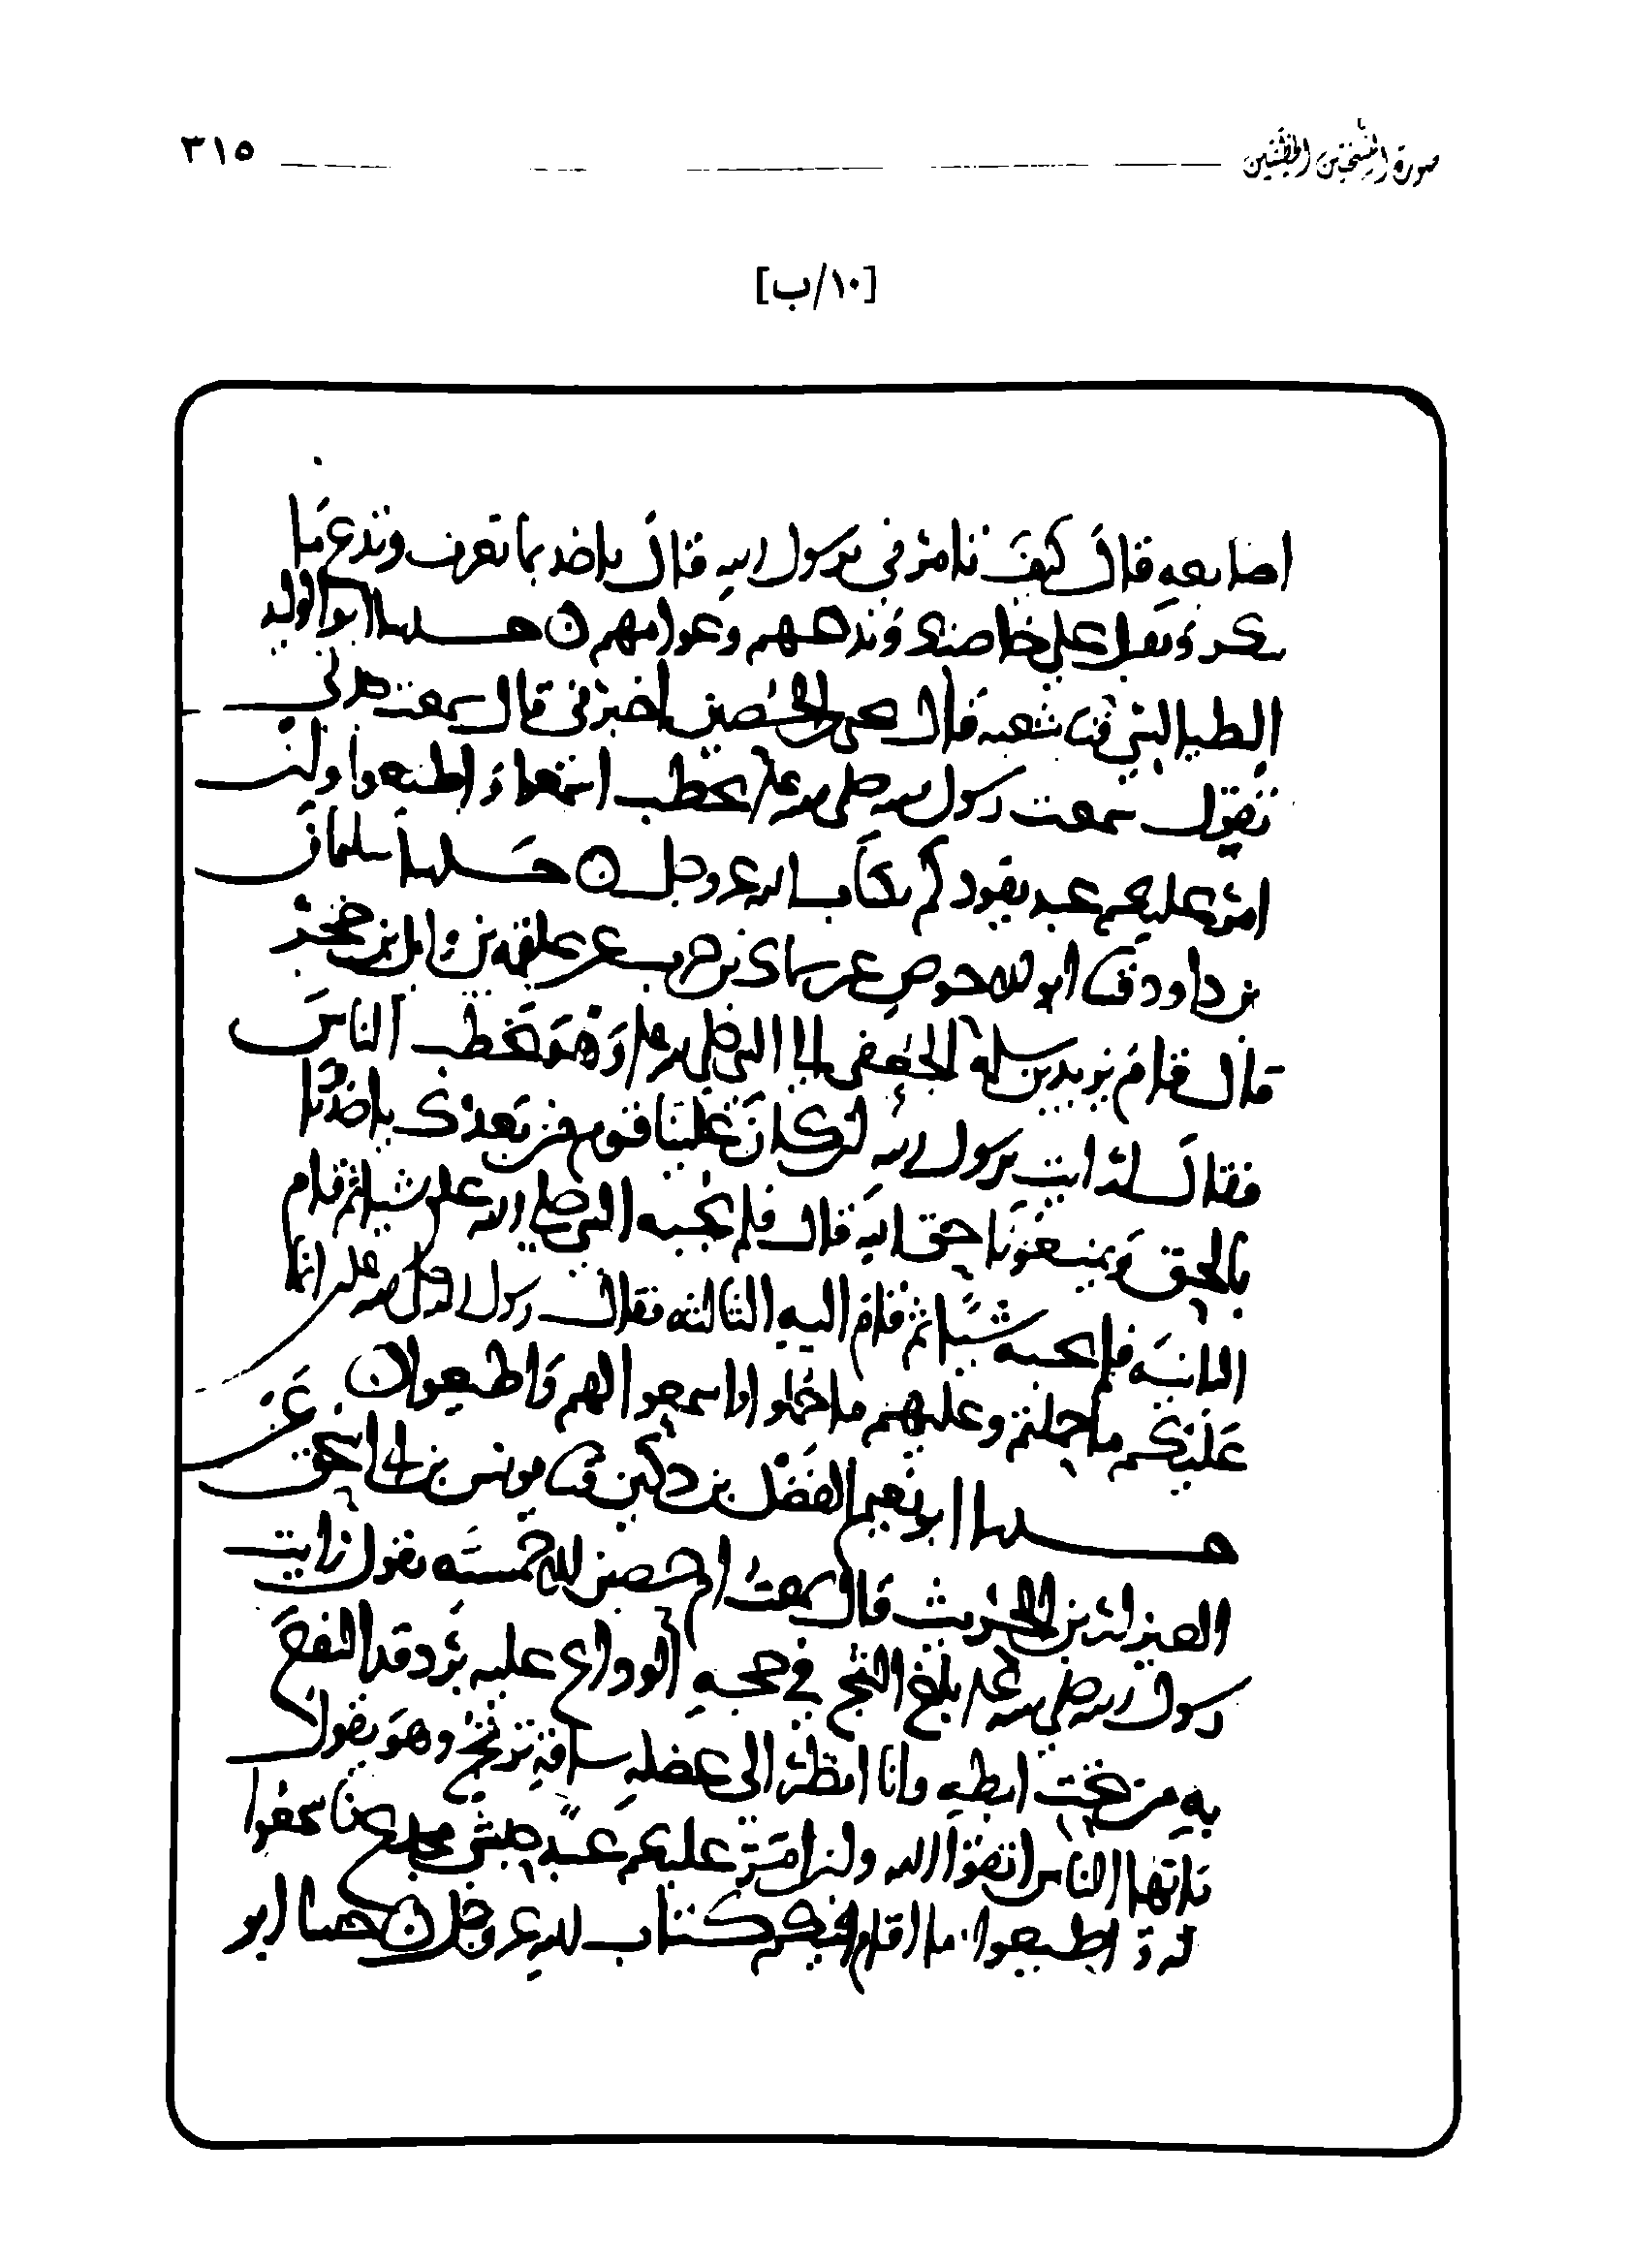 صورة النسختين الخطيتين ٣١٥
[١٠/ب]
اصابعه قال كيف تامرني يرسول الله قال تاخذ بما تعرف وتدع ما
تنكر وتقبل على خاصتك وتدعهم وعوامهم ن حدثنا ابو الوليد
الطيالسي قثنا شعبة قال يحيى الحصين اخبرني قال سمعت جدتي
تقول سمعت رسول الله صلى الله عليه يخطب اسمعوا واطيعوا ولئن
امر عليكم عبد يقودكم بكتاب الله عز وجل ن حدثنا سليمان
بن داود قثنا ابو الاحوص عن سماك بن حرب عن علقمة بن وايل بن حجر
قال قام يزيد بن سلمة الجعفي الى النبي صلى الله عليه وهو يخطب الناس
فقال ارايت يرسول الله لو كان علينا قوم من بعدك ياخذونا
بالحق ويمنعونا حق الله قال فلم يجبه النبي صلى الله عليه شيا ثم قام
الثانية فلم يجبه شيا ثم قام اليه الثالثة فقال رسول الله صلى الله عليه انما
عليكم ما حملتم وعليهم ما حملوا اسمعوا لهم واطيعوا ن
حدثنا ابو نعيم الفضل بن دكين قثنا يونس بن ابي اسحق عن
العيزار بن الحريث قال سمعت ام حصين الاحمسية تقول رايت
رسول الله صلى الله عليه في حجة الوداع عليه برد قد التفع
به من تحت ابطه وانا انظر الى عضلة ساقه ترتج وهو يقول
يايها الناس اتقوا الله ولئن امر عليكم عبد حبشي مجدع فاسمعوا
له واطيعوا ما اقام فيكم كتاب الله عز وجل ن حدثنا ابو